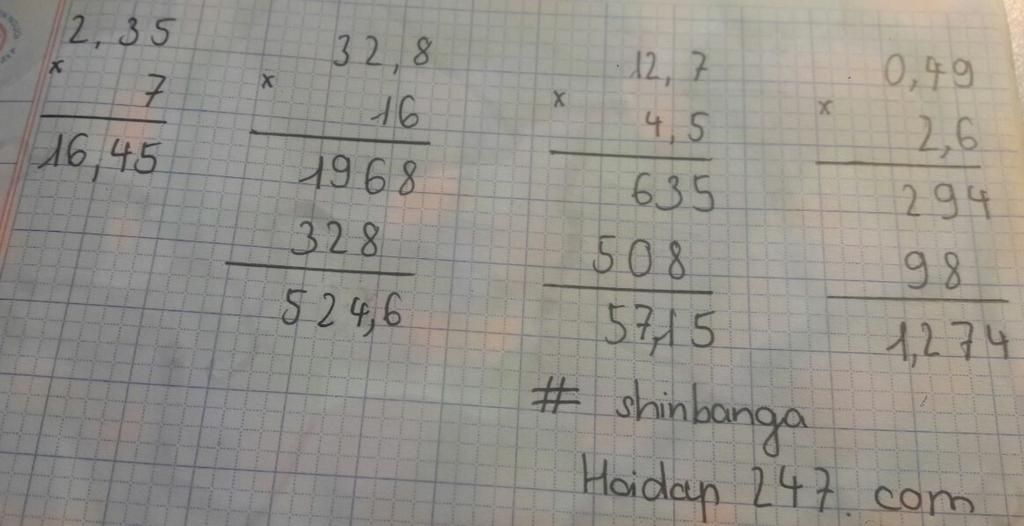 2,35
x
7
16,45
32,8
x
16
1968
328
524,6
12,7
x
4,5
635
508
57,15
0,49
x
2,6
294
98
1,274
# shinbanga
Hoidap 247. com